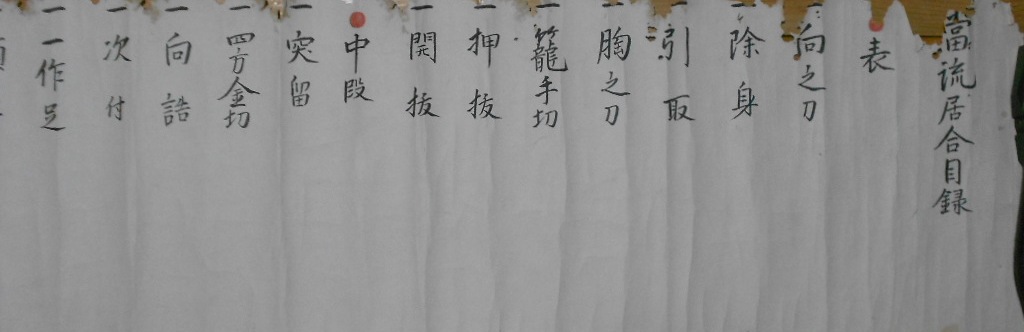 當流居合目録
表
一向之刀
一除身
一引取
一胸之刀
一籠手切
一押抜
一開抜
中段
一突留
一四方金切
一向詰
一次付
一一作足